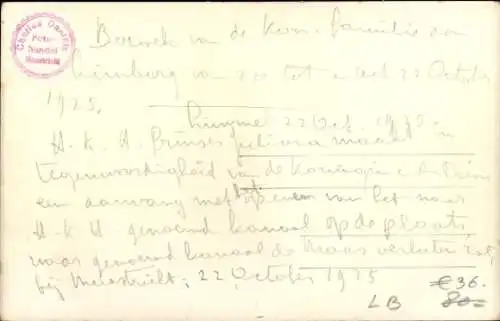 Charles Daniels
Foto-
handel
Maastricht
Bezoek van de Kon. familie aan
Limburg van 20 tot en met 22 October
1925.
Limmel 22 Oct. 1925
H. K. H. Prinses Juliana maakt in
tegenwoordigheid van de Koningin en den Prins
een aanvang met het openen van het naar
H K H genoemd kanaal op de plaats,
waar genoemd kanaal de Maas verlaten zal,
bij Maastricht; 22 October 1925
€36.
LB 80=